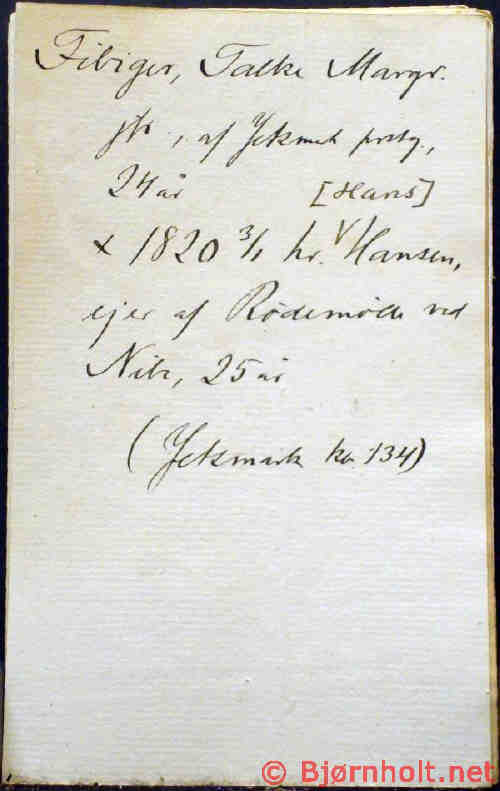 Fibiger, Talke Margr.
jfr., af Jetsmark prstg.,
24 år [Hans]
x 1820 3/1 hr. V Hansen,
ejer af Rödemölle ved
Nibe, 25 år
(Jetsmark kb 134)
© Bjørnholt.net